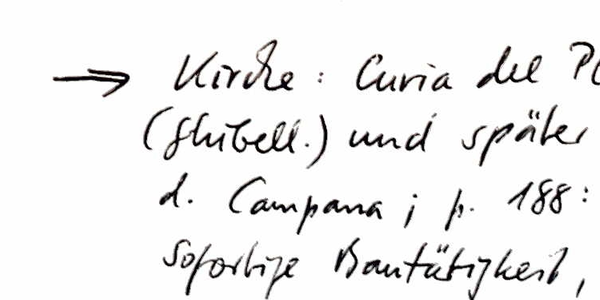 → Kirche: Curia del P
(ghibell.) und später
d. Campana; p. 188:
sofortige Bautätigkeit,